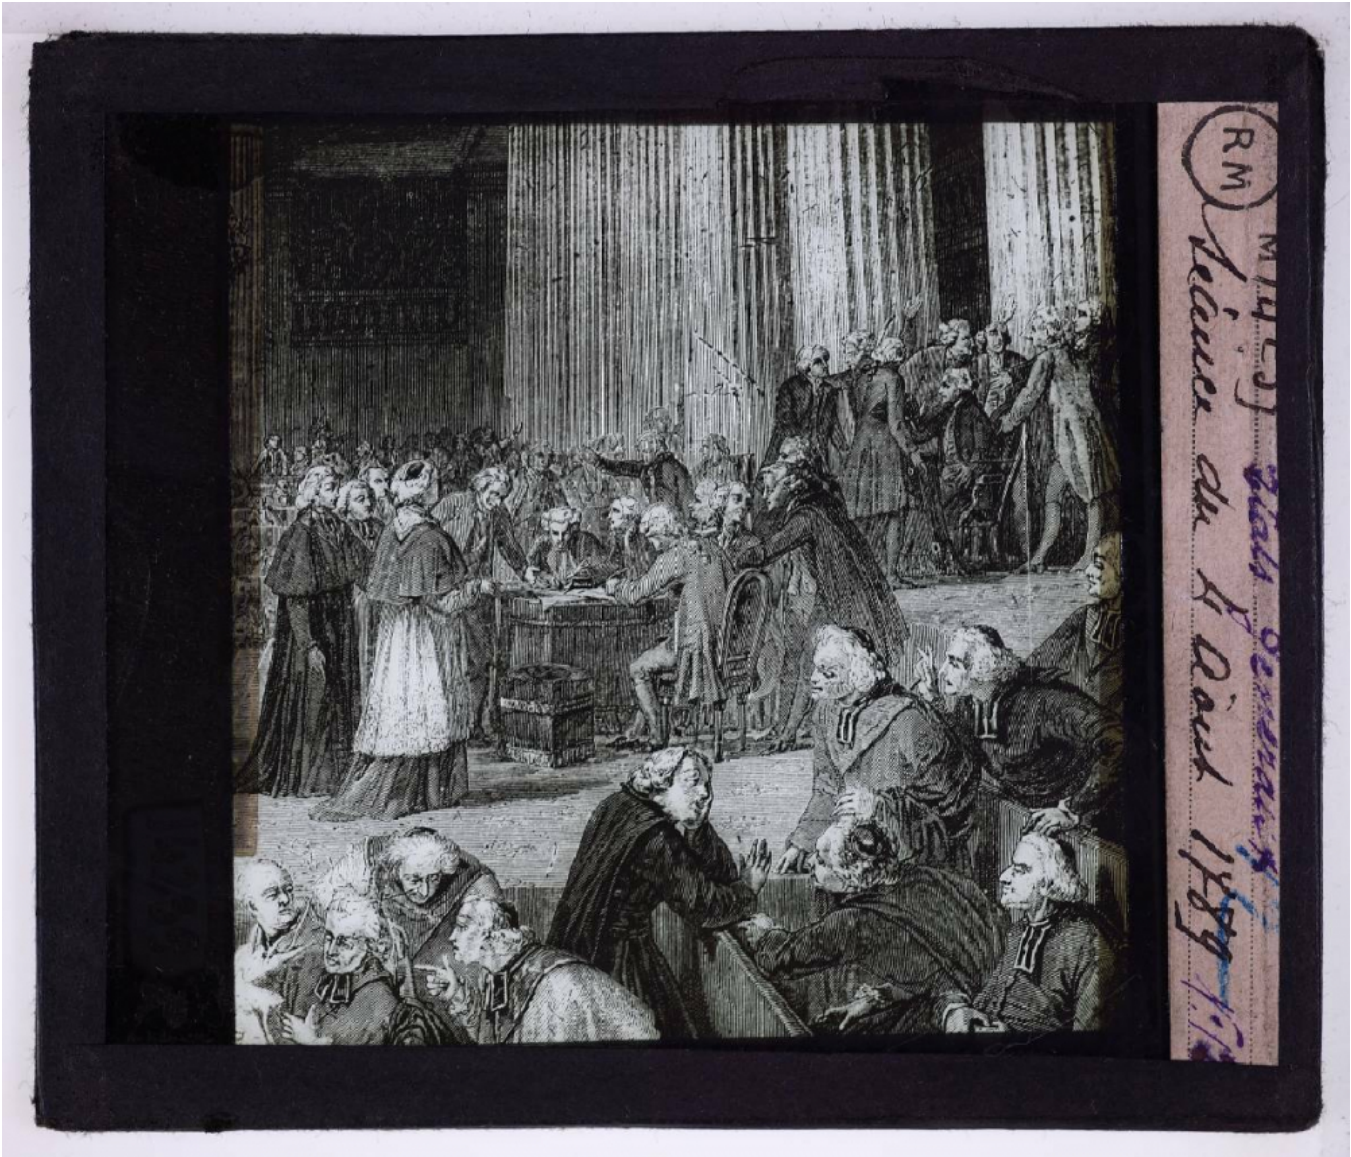 RM
Etats Généraux
Séance du 4 Août 1789